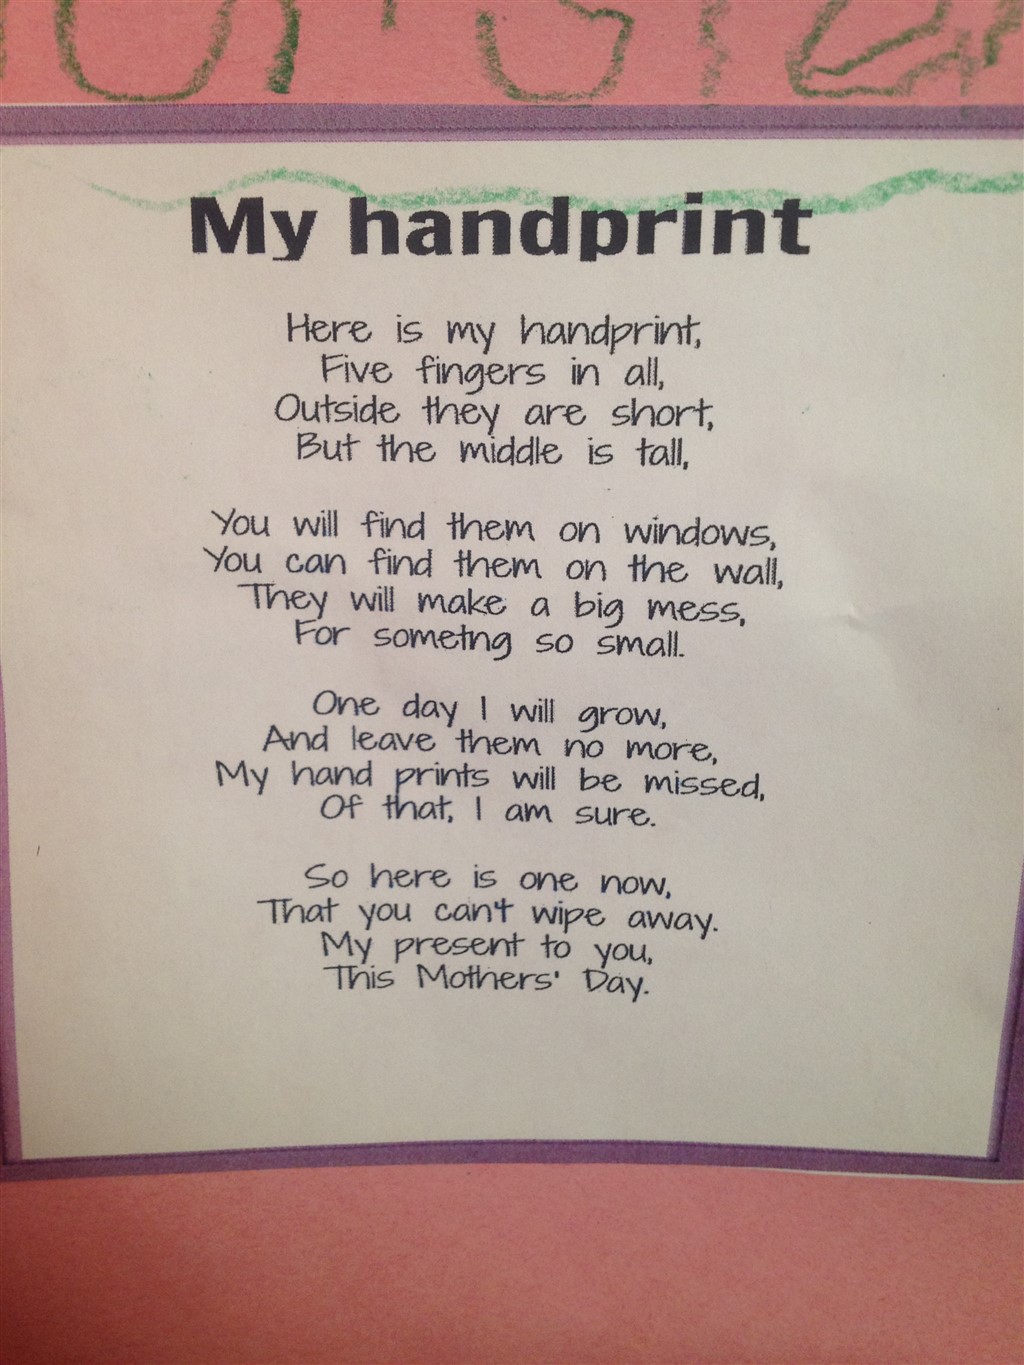 My handprint
Here is my handprint,
Five fingers in all,
Outside they are short,
But the middle is tall,
You will find them on windows,
You can find them on the wall,
They will make a big mess,
For sometng so small.
One day I will grow,
And leave them no more,
My hand prints will be missed,
Of that, I am sure.
So here is one now,
That you can't wipe away.
My present to you,
This Mothers' Day.